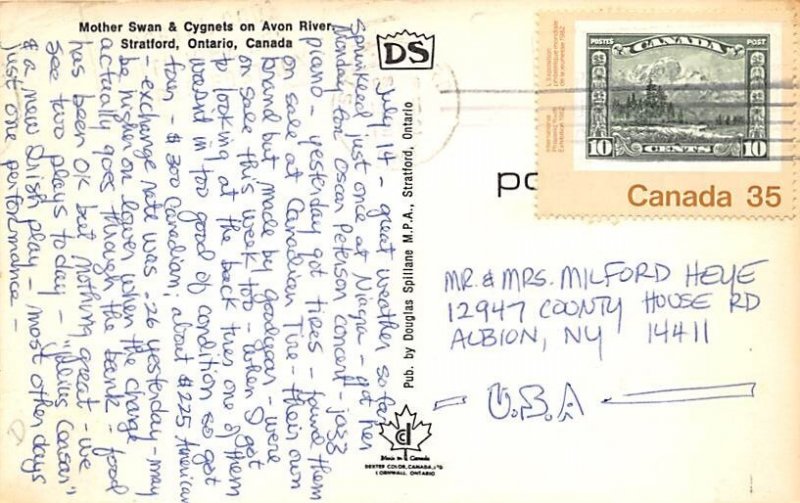 Mother Swan & Cygnets on Avon River.
Stratford, Ontario, Canada
DS
July 14 - great weather so far
sprinkered just one at Niagra - got here
Monday for Oscar Peterson concert - jazz
piano - yesterday got tires - found them
on sale at Canadian Tire - their own
brand but made by goodyear - were
on sale this week too - when I got
to looking at the back tires one of them
wasnt in too good of condition so got
four - $300 Canadian; about $225 American
- exchange rate was .26 yesterday - may
be higher or lower when the charge
actually goes through the bank - food
has been OK but nothing great - we
see two plays today - "Julius Ceasar"
& a new Irish play - most other days
just one performance -
Pub. by Douglas Spillane M.P.A., Stratford, Ontario
Made in Canada
DEXTER COLOR, CANADA, LTD
CORNWALL, ONTARIO
po
International
Philatelic Youth
Exhibition 1982
L'Exposition
philatélique mondiale
de la jeunesse 1982
POSTES
CANADA
POST
10
CENTS
10
Canada 35
MR. & MRS. MILFORD HEYE
12947 COUNTY HOUSE RD
ALBION, NY 14411
- U.S.A -